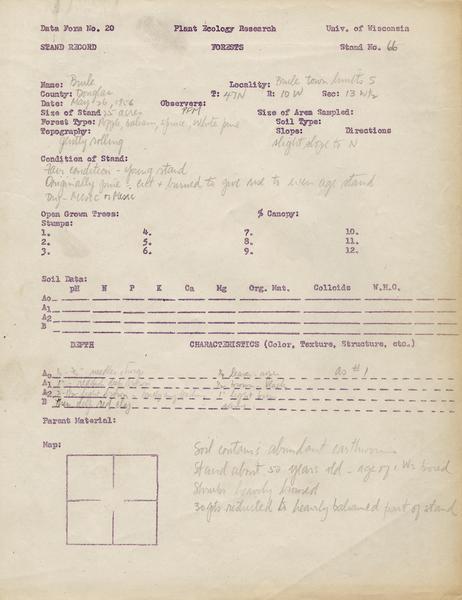 Data Form No. 20 Plant Ecology Research Univ. of Wisconsin
STAND RECORD FORESTS Stand No. 66
Name: Brule Locality: Brule town limits S
County: Douglas T: 47N R: 10W Sec: 13 W½
Date: May 26, 1956 Observers: PFM
Size of Stand: 25 acres Size of Area Sampled:
Forest Type: Popple, balsam, spruce, white pine Soil Type:
Topography: Slope: Directions
gently rolling slight slope to N
Condition of Stand:
Fair condition - young stand
Originally pine; cut + burned to give rise to even age stand
Dry-mesic
Open Grown Trees: % Canopy:
Stumps:
1. 4. 7. 10.
2. 5. 8. 11.
3. 6. 9. 12.
Soil Data:
pH N P K Ca Mg Org. Mat. Colloids W.H.C.
Ao
A1
A2
B
DEPTH CHARACTERISTICS (Color, Texture, Structure, etc.)
Ao as #1
A1
A2
B red clay
Parent Material:
Map:
Soil contains abundant earthworms
Stand about 50 years old - age of Wp bored
Shrubs heavily browsed
30 pts restricted to heavily balsamed part of stand